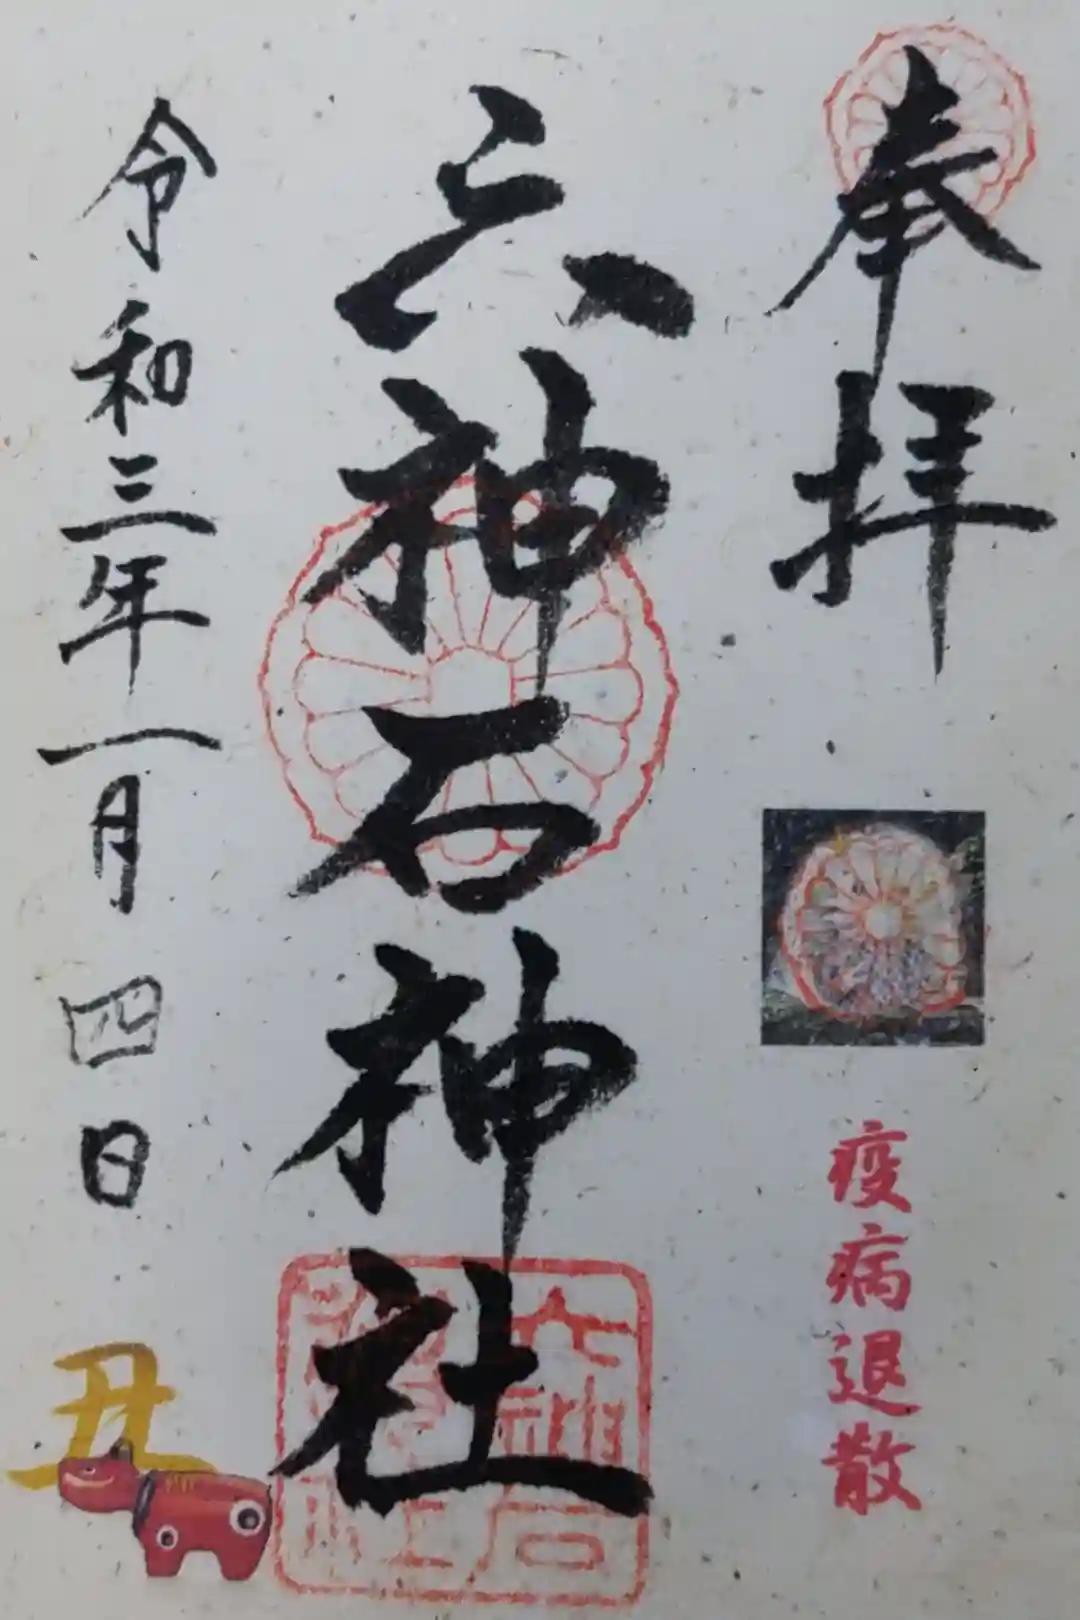 奉拝
疫病退散
六神石神社
六神石神社
令和三年一月四日
丑